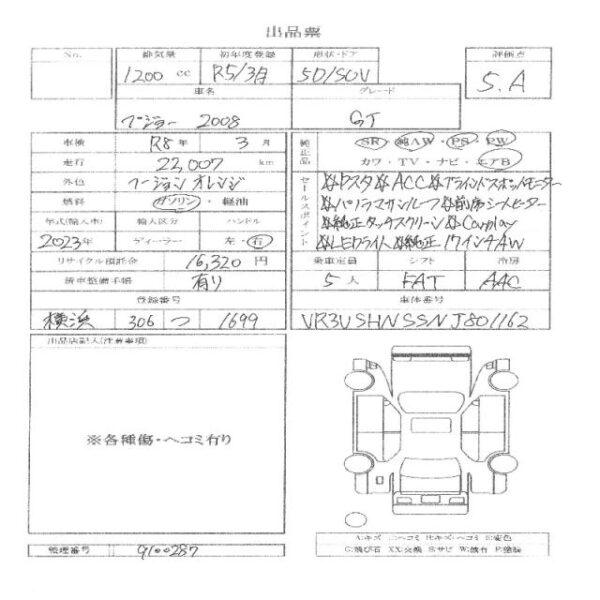 出品票
No. 排気量 初年度登録 形状・ドア 評価点
1200 cc R5/3月 5D/SUV 5.A
車名 グレード
プージョー 2008 GT
車検 R8年 3月
走行 22,007 km
外色 フージョン オレンジ
燃料 ガソリン・軽油
年式(輸入車) 輸入区分 ハンドル
2023年 ディーラー 左・右
リサイクル預託金 16,320 円
新車整備手帳 有り
登録番号
横浜 306 つ 1699
純正品 SR・純AW・PS・PW
カワ・TV・ナビ・エアB
セールスポイント
☆Pスタ☆ACC☆ブラインドスポットモニター
☆パノラマサンルーフ☆前席シートヒーター
☆純正タッチスクリーン☆Carplay
☆LEDライト☆純正17インチAW
乗車定員 シフト 冷房
5人 FAT AAC
車体番号
VR3USHNSSNJ801162
出品店記入(注意事項)
※各種傷・ヘコミ有り
A:キズ :ヘコミ B:キズ・ヘコミ :変色
G:飛び石 XX:交換 S:サビ W:補有 P:塗装
管理番号 9100287